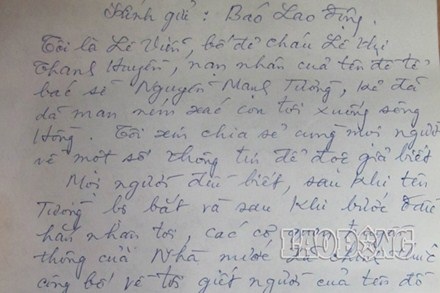 Kính gửi: Báo Lao Động.
Tôi là Lê Viễn, bố đẻ cháu Lê Thị
Thanh Huyền, nạn nhân của tên đồ tể
bác sĩ Nguyễn Mạnh Tường, kẻ đã
dã man ném xác con tôi xuống sông
Hồng. Tôi xin chia sẻ cùng mọi người
về một số thông tin để đọc giả biết
Mọi người đều biết, sau khi tên
Tường bị bắt và sau khi bước đầu
hắn nhận tội, các cơ
LAODONG
thống của Nhà nước thức
công bố về tội giết người của tên đồ